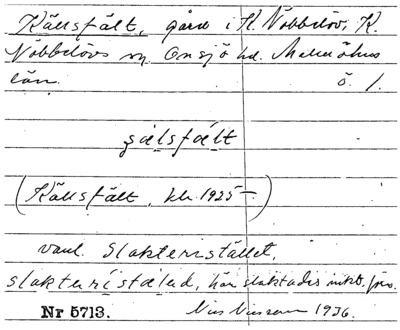 Källsfält, gård i K. Nöbbelöv, K.
Nöbbelövs sn, Onsjö hd. Malmöhus
län. ö. 1.
sælsfælt
(Källsfält, kb. 1925–)
vanl. Slakteristället,
slakteristæled, här slaktades
Nr 5713. 1936.